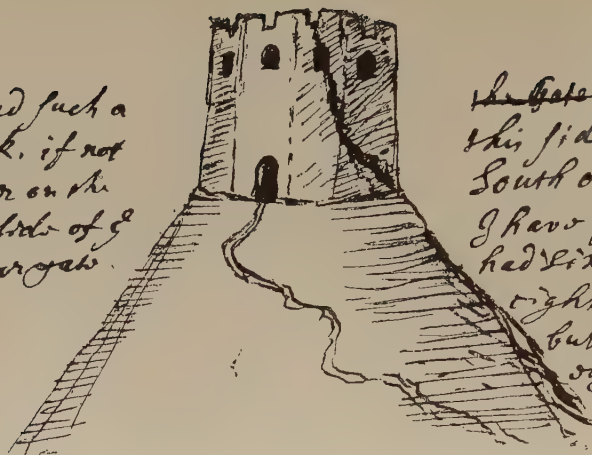 ad such a
k. if not
er on the
side of ye
argate.
the Gate
this sid
South o
I have
had Six
right
but